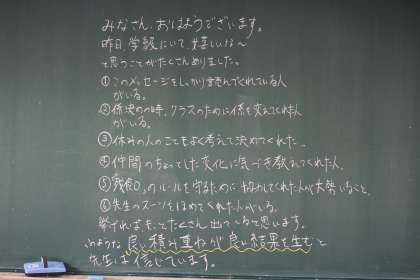 みなさん、おはようございます。
昨日、学級にいて、嬉しいな〜
と思うことがたくさんありました。
①このメッセージをしっかり読んでくれている人
がいる。
②係決めの時、クラスのために係を変えてくれた人
がいる。
③休みの人のことをよく考えて決めてくれた。
④仲間のちょっとした変化に気づき教えてくれた人。
⑤残食0のルールを守るために協力してくれた人が大勢いること。
⑥先生のスーツをほめてくれた人がいる。
挙げればもってたくさん出てくると思います。
このような良い積み重ねが良い結果を生むと
先生は信じています。